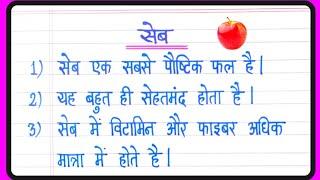 सेब
1) सेब एक सबसे पौष्टिक फल है |
2) यह बहुत ही सेहतमंद होता है |
3) सेब में विटामिन और फाइबर अधिक
मात्रा में होते है |